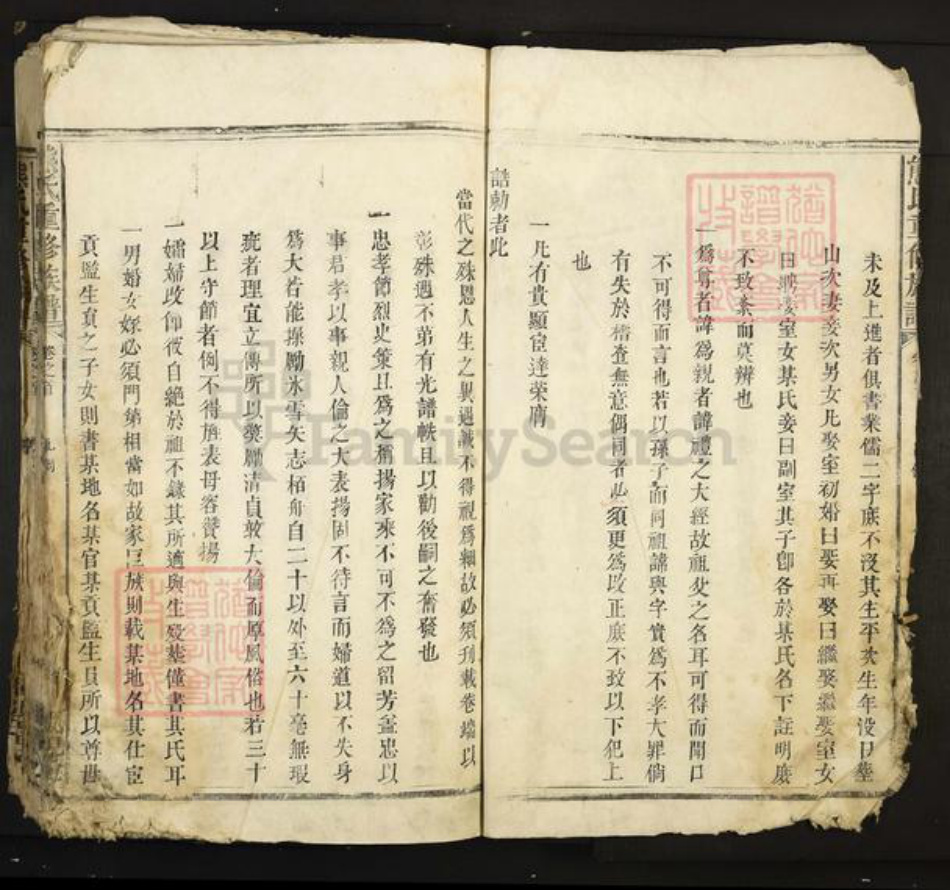 未及上進者俱書業儒二字庶不沒其生平次生年没日塟
山次妻妾次男女凡娶室初婚曰娶再娶曰繼娶繼娶室女
曰聘娶室女某氏妾曰副室其子卽各於某氏名下註明庶
不致紊而莫辨也
一爲尊者諱爲親者諱禮之大經故祖父之名耳可得而聞口
不可得而言也若以孫子而同祖諱與字實爲不孝大罪倘
有失於稽查無意偶同者必須更爲改正庶不致以下犯上
也
一凡有貴顯宦達榮膺
誥勅者此
當代之殊恩人生之異遇誠不得視爲細故必須刋載卷端以
彰殊遇不第有光譜帙且以勸後嗣之奮發也
一忠孝節烈史策且爲之稱揚家乘不可不爲之留芳盖忠以
事君孝以事親人倫之大表揚固不待言而婦道以不失身
爲大若能操勵氷雪矢志栢舟自二十以外至六十毫無瑕
疵者理宜立傳所以獎勵清貞敦大倫而厚風俗也若三十
以上守節者例不得旌表毋容贊揚
一孀婦改節彼自絶於祖不錄其所適與生殁塟僅書其氏耳
一男婚女嫁必須門第相當如故家巨族則載某地名其仕宦
貢監生員之子女則書某地名某官某貢監生員所以尊世
熊氏重修族譜
卷之首
FamilySearch